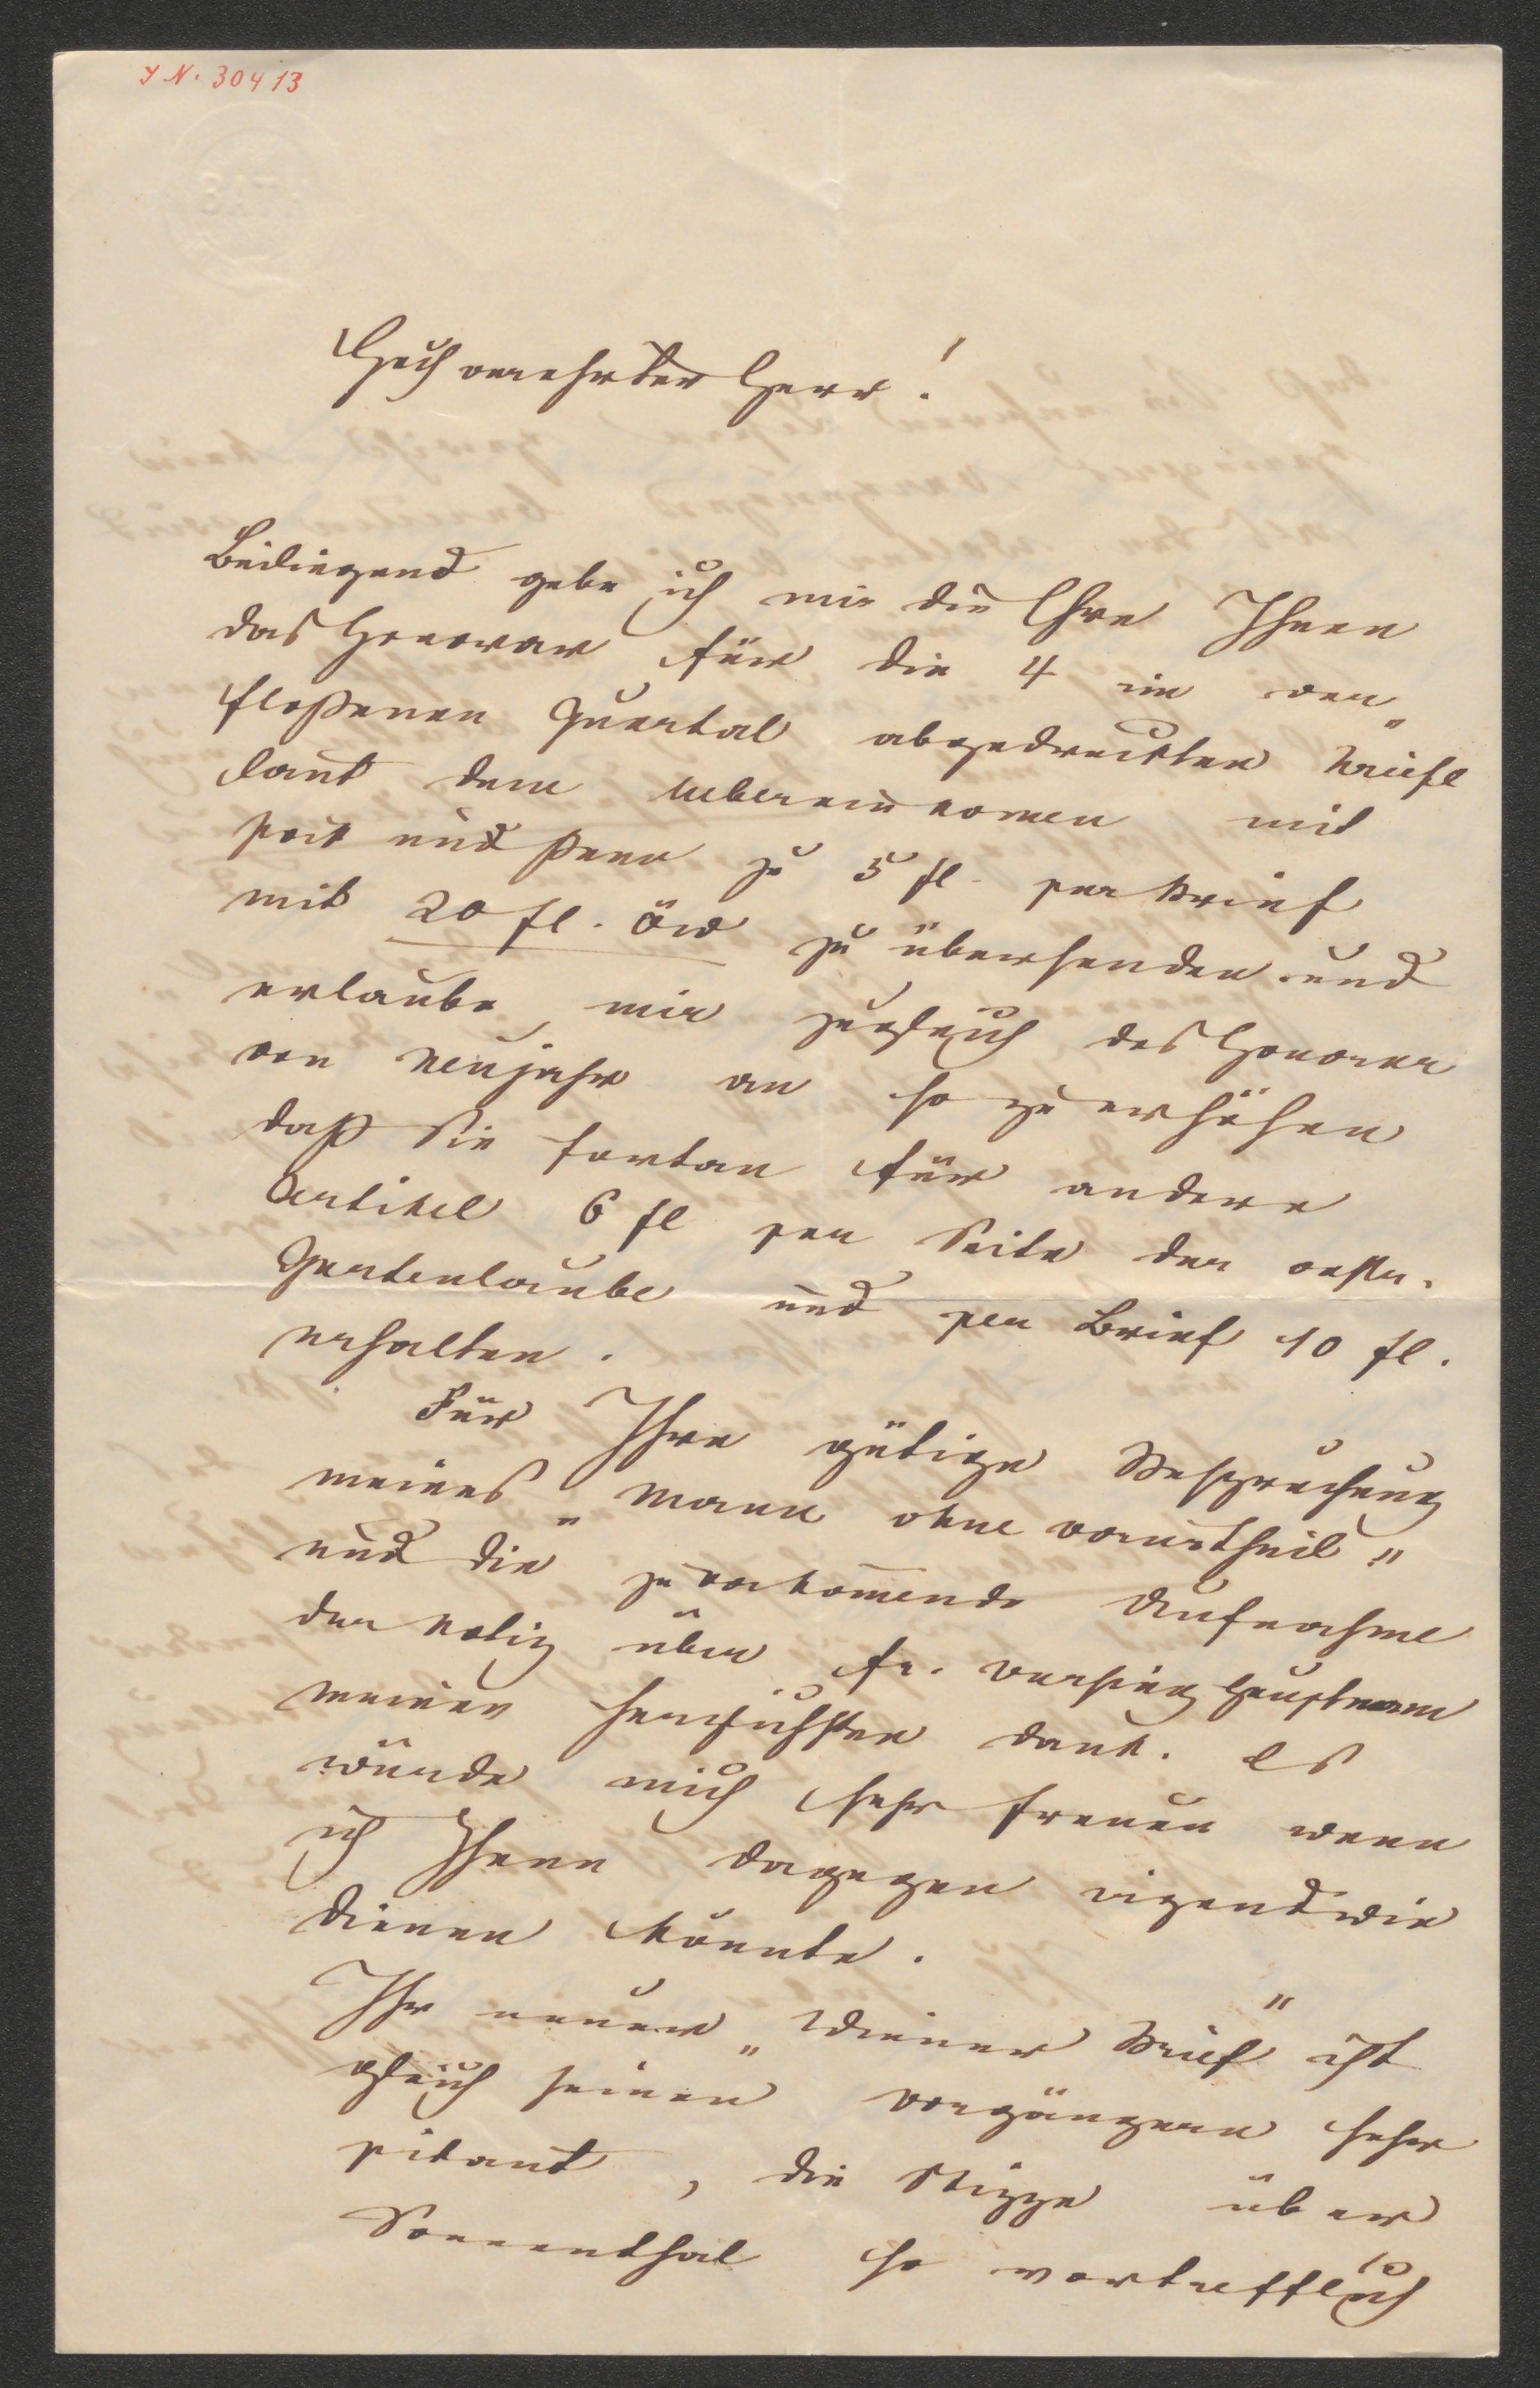 I N. 30413
Hochverehrter Herr!
Beiliegend gebe ich mir die Ehre Ihnen
das Honorar für die 4 im ver„
floßenen Quartal abgedruckten Briefe
laut dem Uebereinkomen mit
zu 5 fl. per Brief
mit 20 fl. öw zu übersenden und
erlaube mir zugleich das Honorar
von Neujahr an so zu erhöhen
daß Sie fortan für andere
Artikel 6 fl per Seite der oestr.
Gartenlaube und per Brief 10 fl.
erhalten.
Für Ihre gütige Besprechung
meines „Mann ohne Vorurtheil"
und die zuvorkomende Aufnahme
der Notiz über Fr. Versing Hauptmann
meinen herzlichsten Dank. Es
würde mich sehr freuen wenn
ich Ihnen dagegen irgendwie
dienen könnte.
Ihr neuer „Wiener Brief" ist
gleich seinen Vorgängern sehr
pikant, die Skizze über
Sonnenthal so vortrefflich